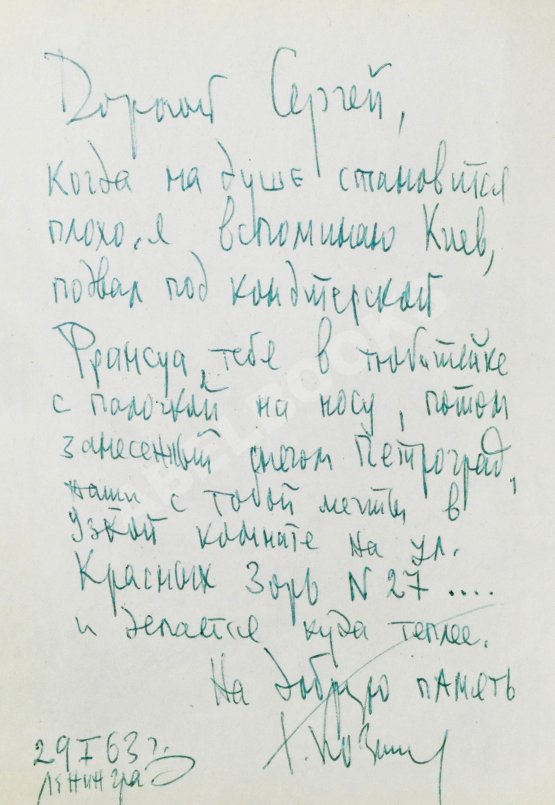 Дорогой Сергей,
когда на душе становится
плохо, я вспоминаю Киев,
подвал под кондитерской
Франсуа, тебя в тюбетейке
с палочкой на носу, потом
занесенный снегом Петроград,
наши с тобой мечты в
узкой комнате на ул.
Красных Зорь N 27 ....
и делается куда теплее.
На добрую память
29 I 63 г.
Ленинград
ABELBOOKS